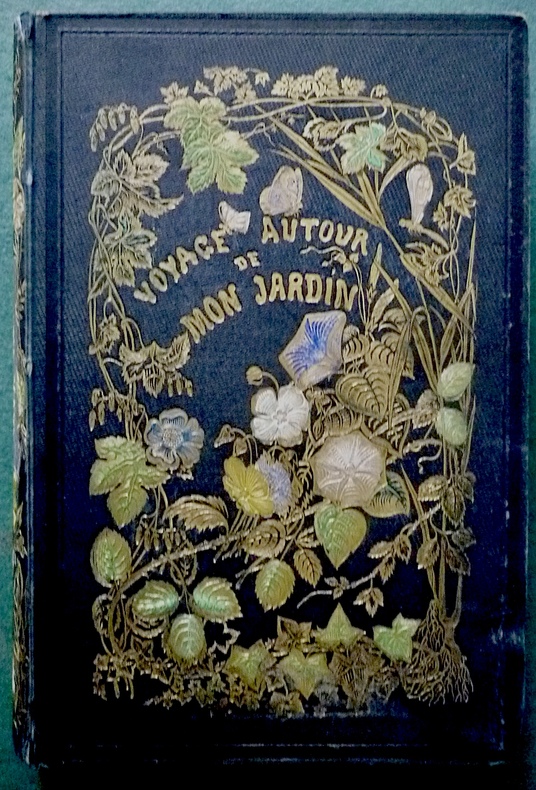 VOYAGE AUTOUR
DE
MON JARDIN